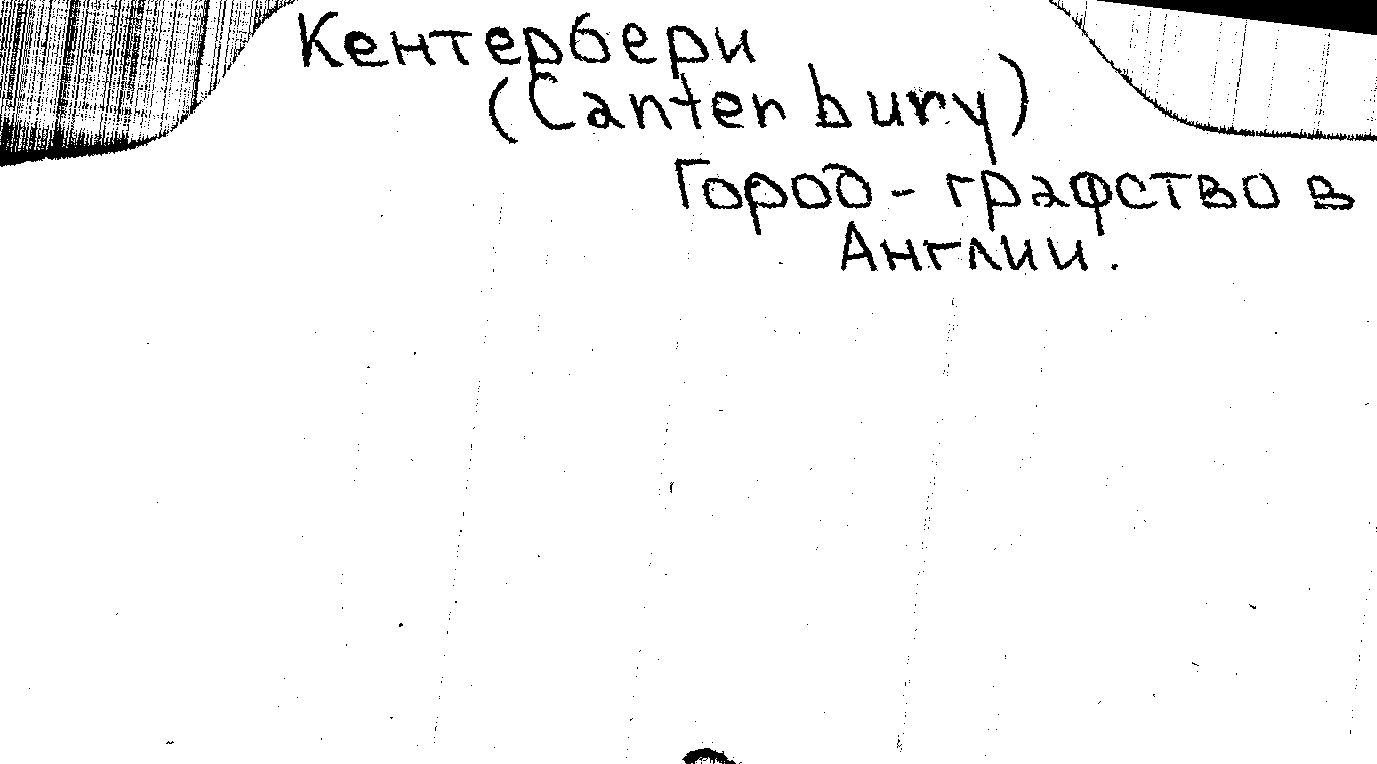 Кентербери
(Canterbury)
Город - графство в
Англии.